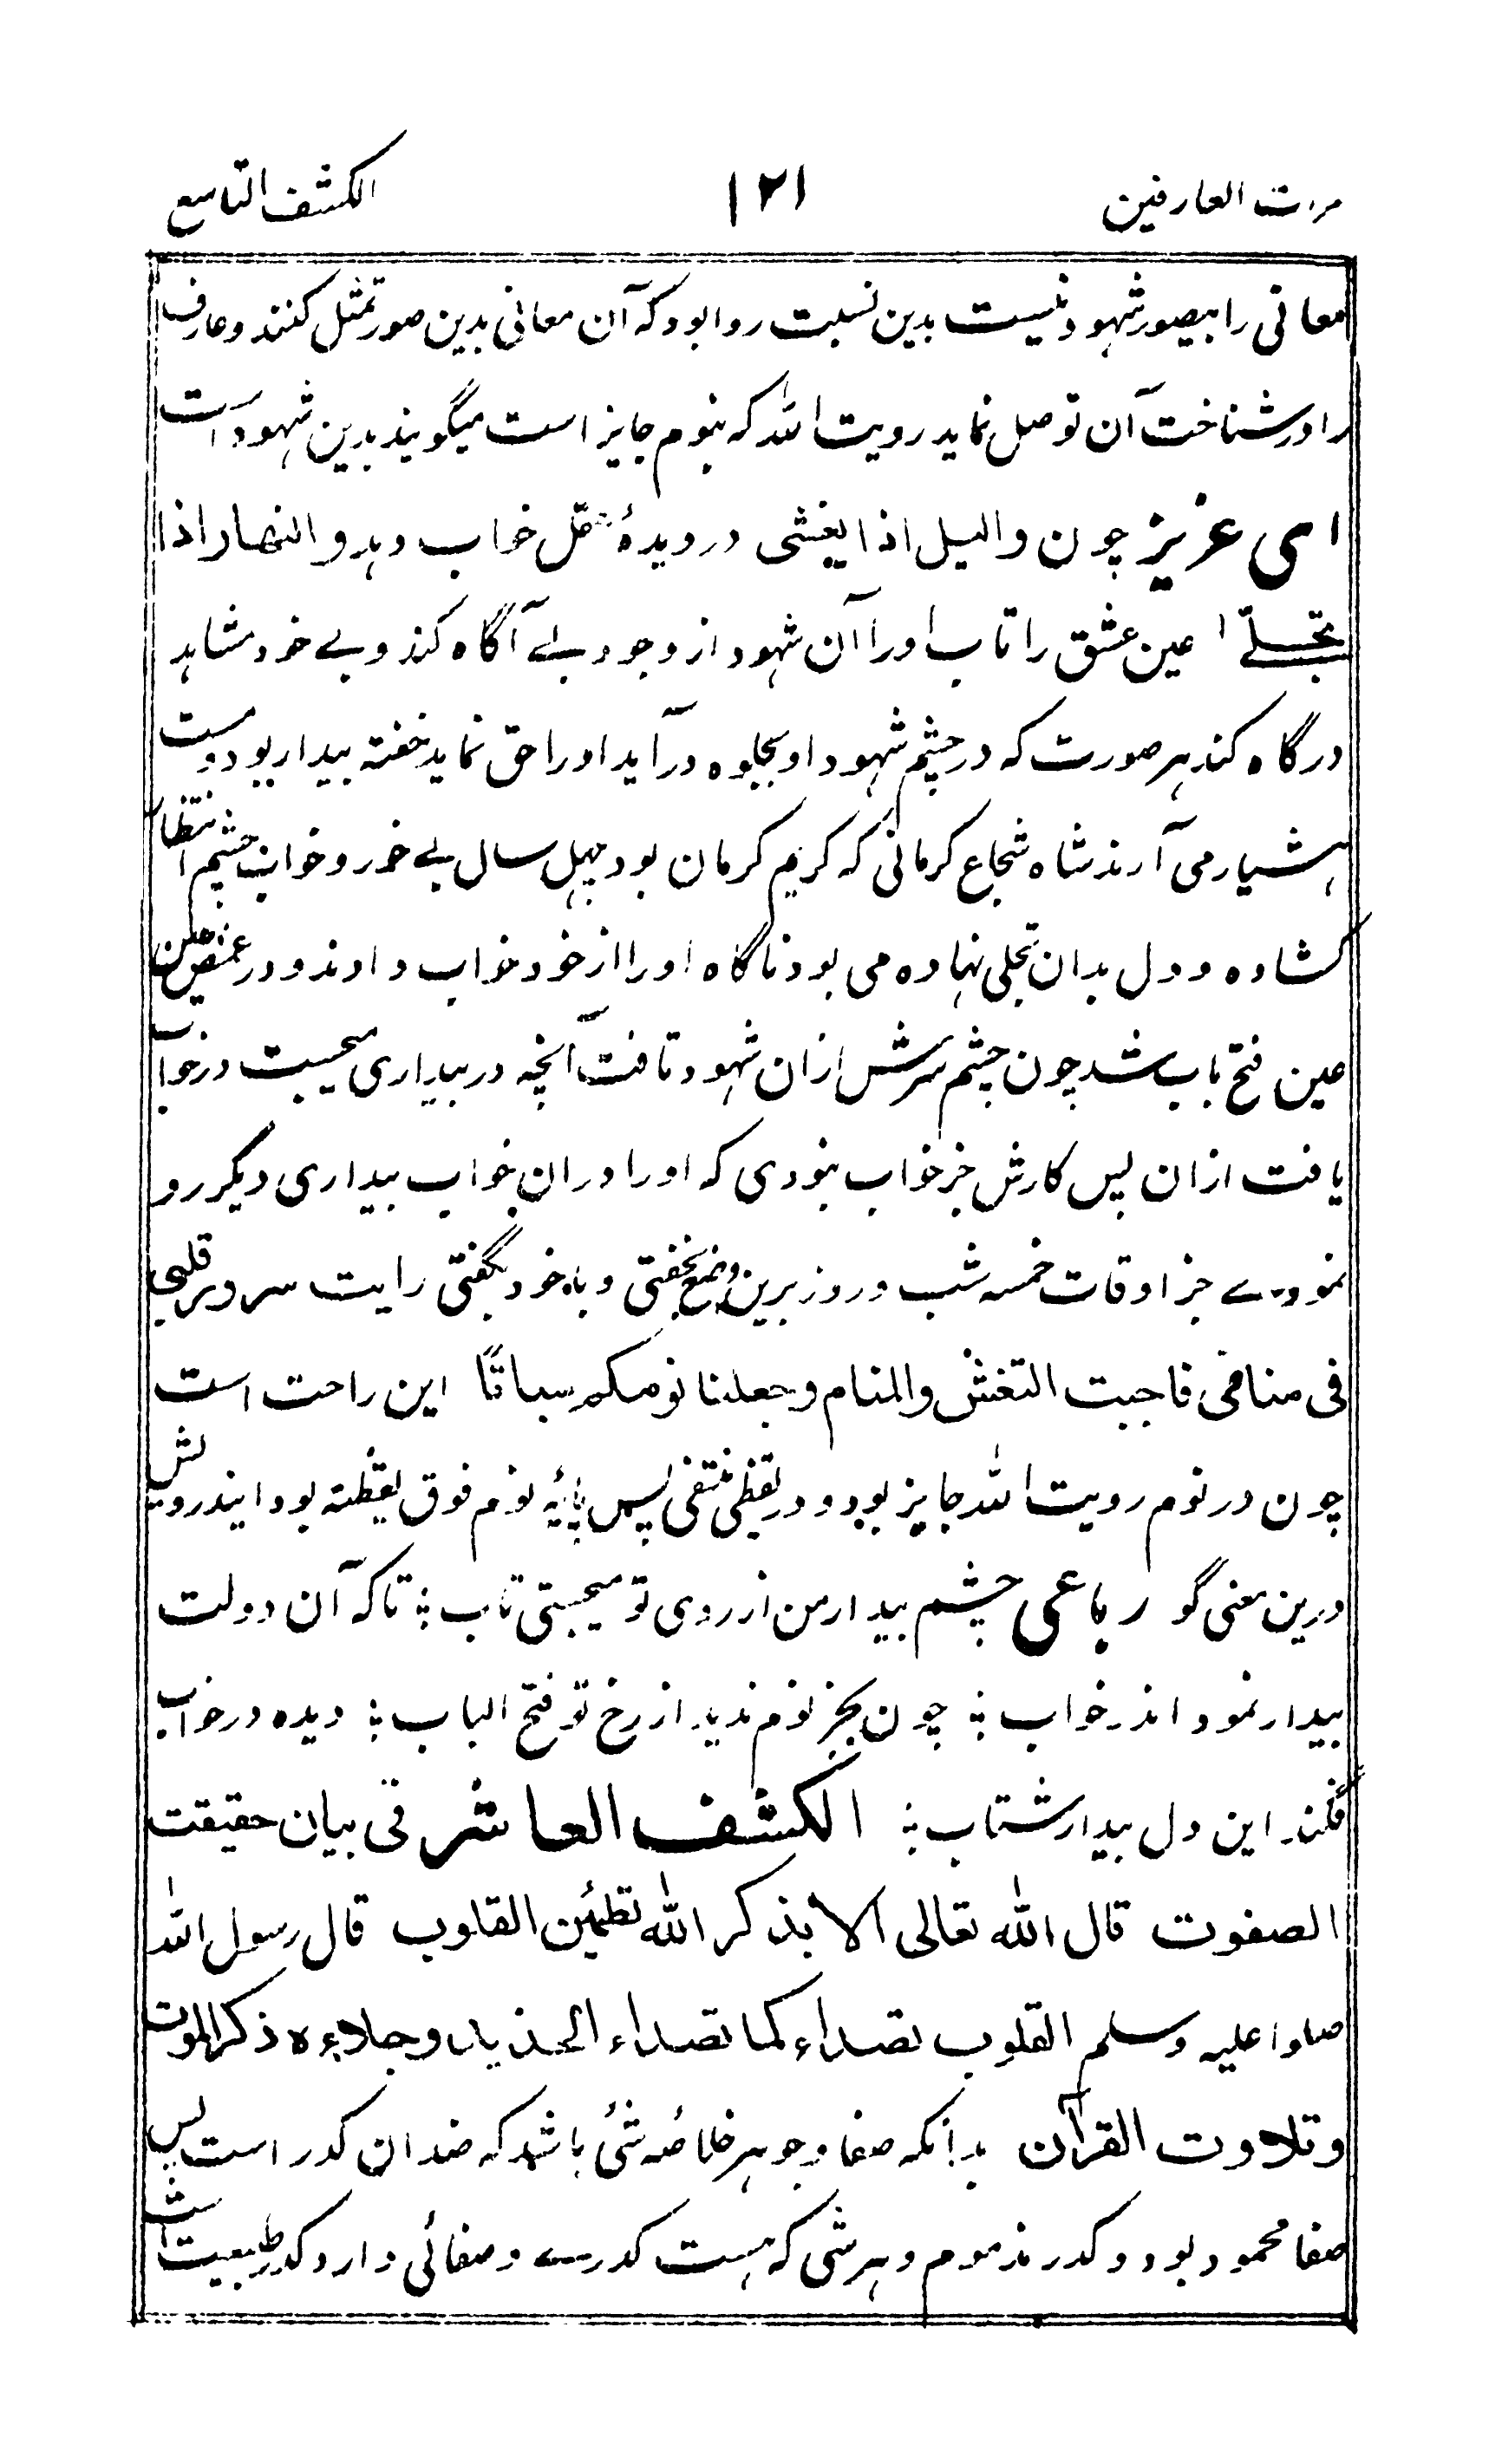 مرات العارفین ۱۲۱ الکشف التاسع
معانی را بصور شهود نیست بدین نسبت روا بود که آن معانی بدین صور تمثل کنند و عارف
را در شناخت آن توصل نماید رویت الله که بنوم جایز است میگویند بدین شهود است
ای عزیز چون والیل اذا یغشی در دیدهٔ عقل خواب دهد والنهار اذا
تجلّے عین عشق را تاب اورا آن شهود از وجود بے آگاه کند و بے خود مشاهد
درگاه کند هر صورت که در چشم شهود او بجلوه درآید اورا حق نماید خفته بیدار بود و مست
هشیار می آرند شاه شجاع کرمانی که کریم کرمان بود چهل سال بے خور و خواب چشم انتظار
کشاده و دل بدان تجلی نهاده می بود ناگاه اورا از خود خواب دادند و در غمض عین
عین فتح باب شد چون چشم سرش ازان شهود تافت آنچه در بیداری میجست در خواب
یافت ازان پس کارش جز خواب نبودی که اورا دران خواب بیداری دیگر رو
نمودے جز اوقات خمسه شب و روز برین وضع بخفتی و باخود بگفتی رایت سرور قلبی
فی منامی فاجبت التغش والمنام وجعلنا نومکم سباتًا این راحت است
چون در نوم رویت الله جایز بود و در یقظی منتفی پس پایهٔ نوم فوق یقظته بود ایندرویش
درین معنی گو رباعی چشم بیدار من از روی تو میجستی تاب ؛ تاکه آن دولت
بیدار نمود اندر خواب ؛ چون بجز نوم ندید از رخ تو فتح الباب ؛ دیده در خواب
فگند این دل بیدار شتاب ؛ الکشف العاشر فی بیان حقیقت
الصفوت قال الله تعالی الا بذکر الله تطمئن القلوب قال رسول الله
صلوا علیه وسلم القلوب تصداء کما تصداء الحدید وجلاءه ذکر الموت
وتلاوت القرآن بدانکه صفا وجوهر خلاصه شیٔ باشد که ضد ان کدر است پس
صفا محمود بود و کدر مذموم و هر شی که هست کدرے و صفائی دارد کدر طبیعیت است